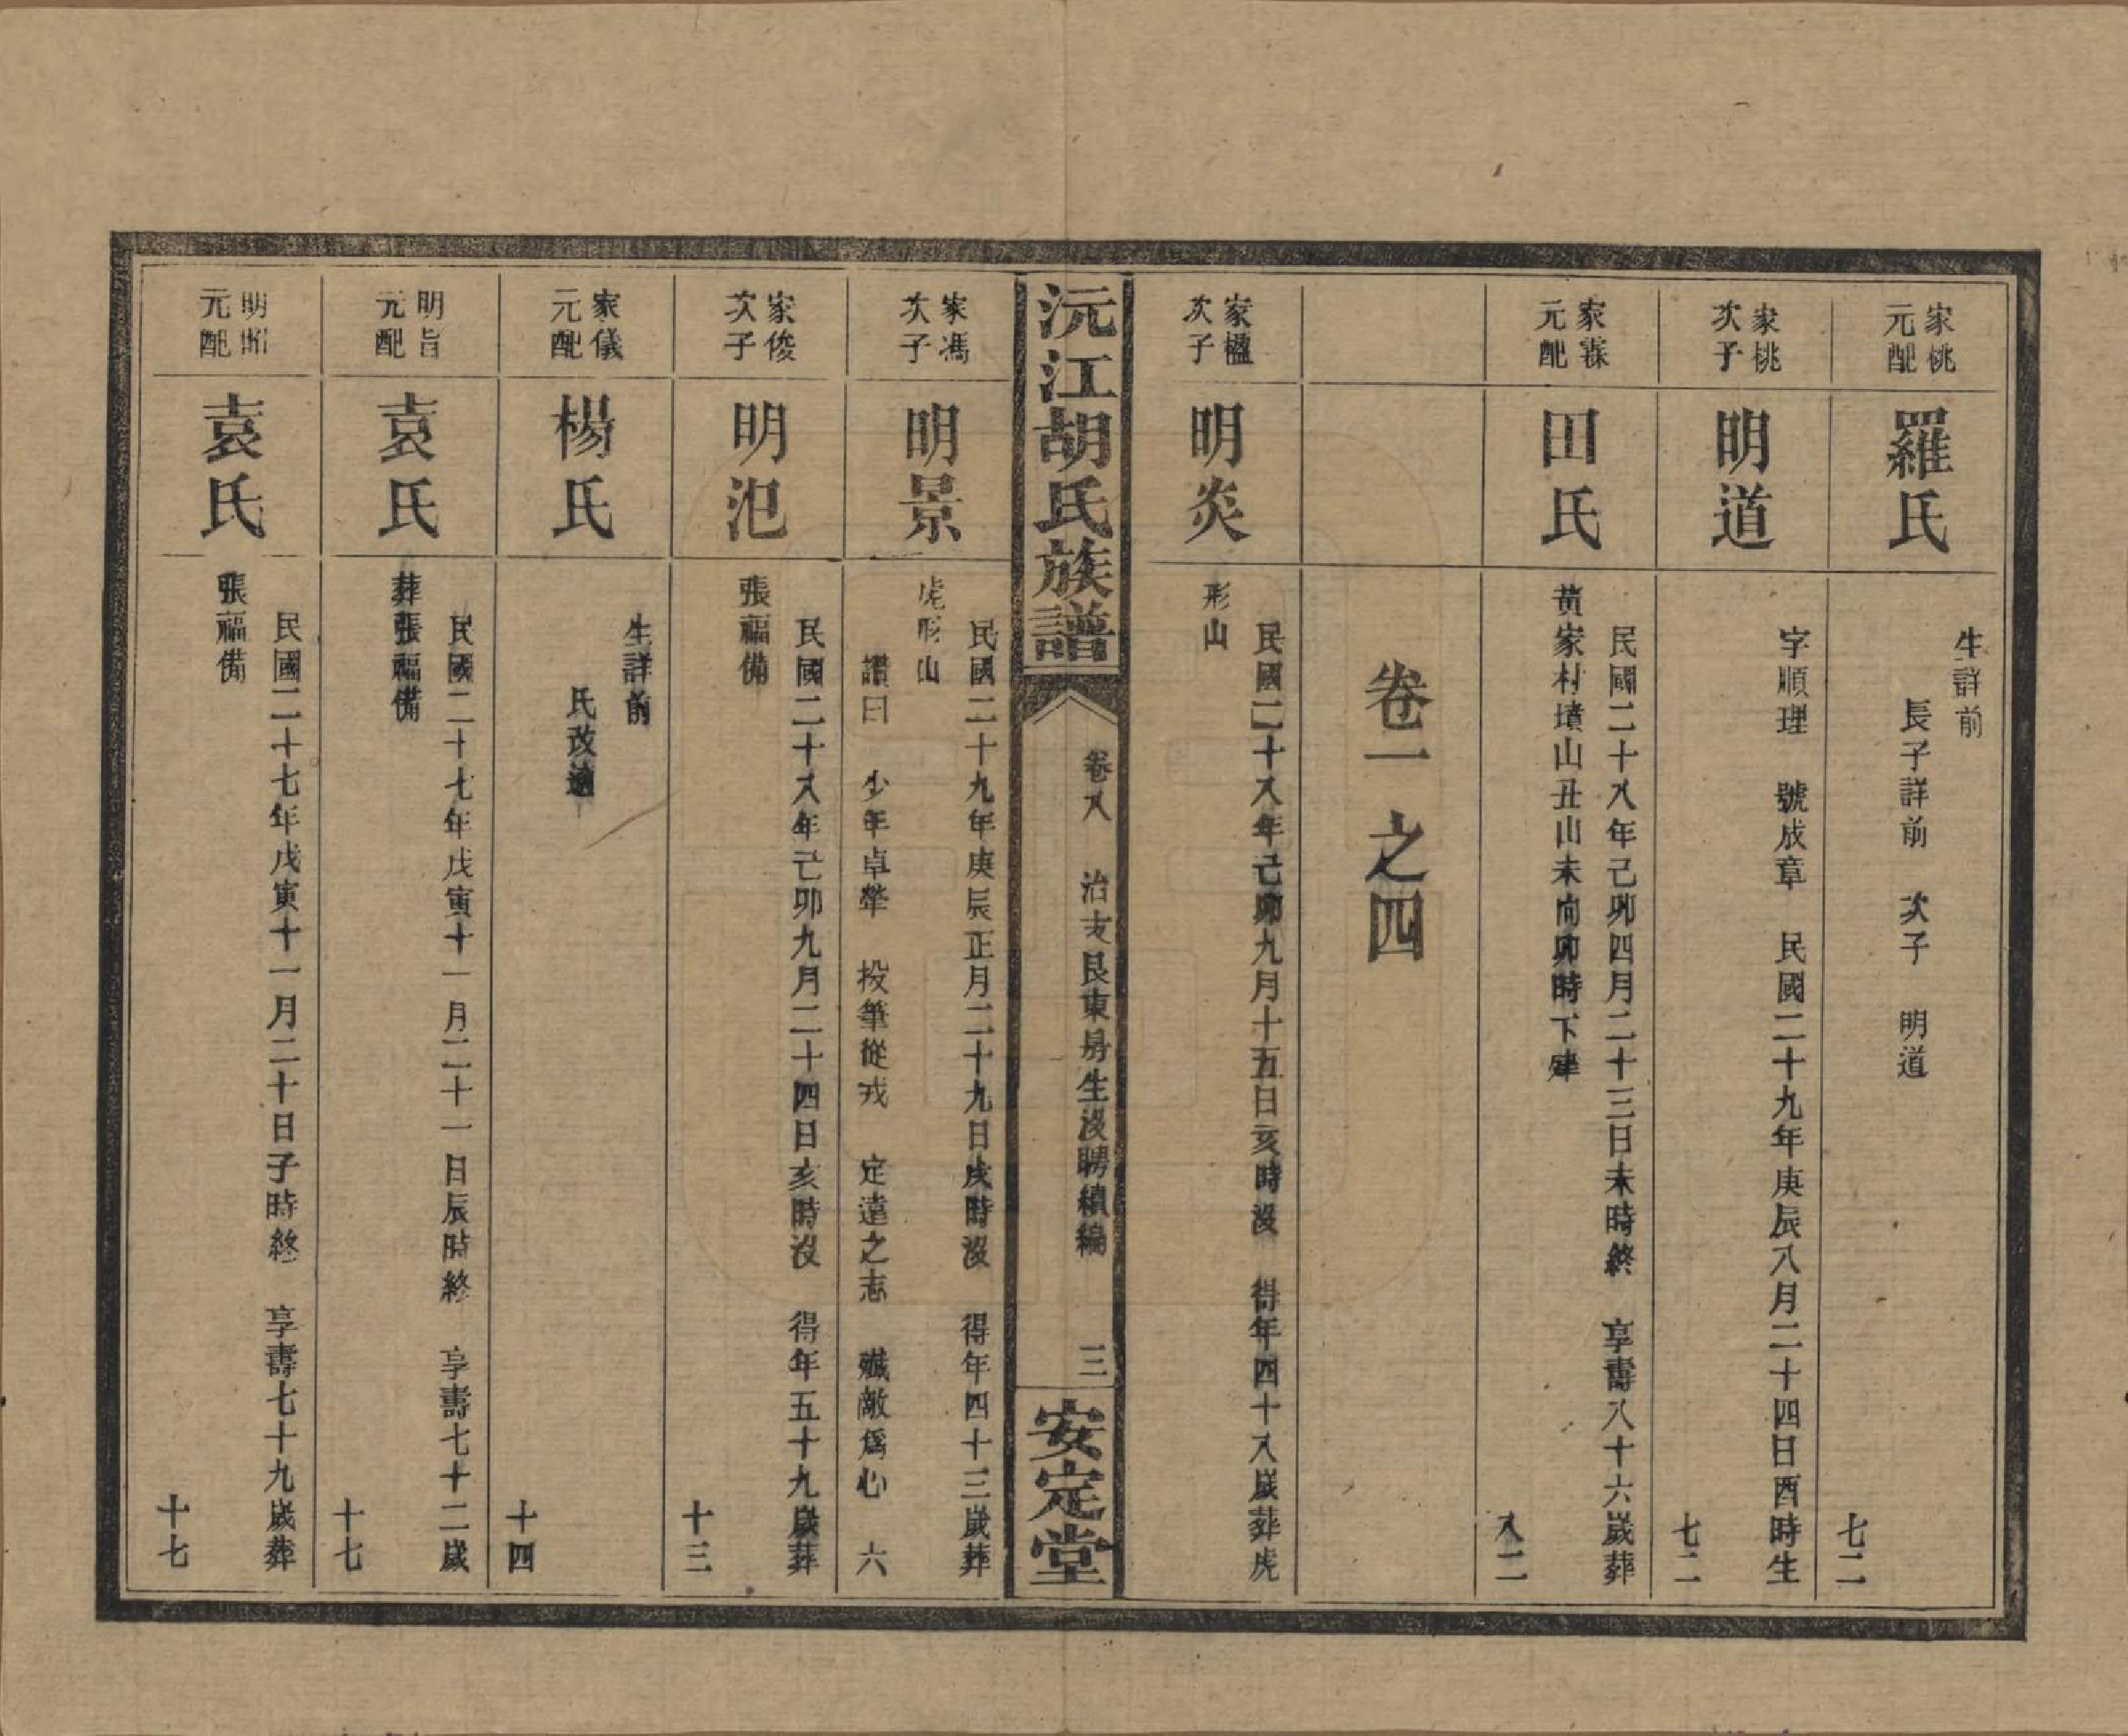 家桃
元配
羅氏
生詳前
長子詳前　次子　明道
七二
家桃
次子
明道
字順理　號成章　民國二十九年庚辰八月二十四日酉時生
七二
家霖
元配
田氏
民國二十八年己卯四月二十三日未時終　享壽八十六歲葬
黃家村墳山丑山未向卯時下肂
八二
卷一之四
家楹
次子
明炎
民國二十八年己卯九月十五日亥時沒　得年四十八歲葬虎
形山
沅江胡氏族譜
卷八　治支艮東房生沒聘續編　三
安定堂
家馮
次子
明景
民國二十九年庚辰正月二十九日戌時沒　得年四十三歲葬
虎形山
讚曰　少年卓犖　投筆從戎　定遠之志　殲敵爲心　六
家俊
次子
明氾
民國二十八年己卯九月二十四日亥時沒　得年五十九歲葬
張福備
十三
家儀
元配
楊氏
生詳前
氏改適
十四
明旨
元配
袁氏
民國二十七年戊寅十一月二十一日辰時終　享壽七十二歲
葬張福備
十七
明昭
元配
袁氏
民國二十七年戊寅十一月二十日子時終　享壽七十九歲葬
張福備
十七